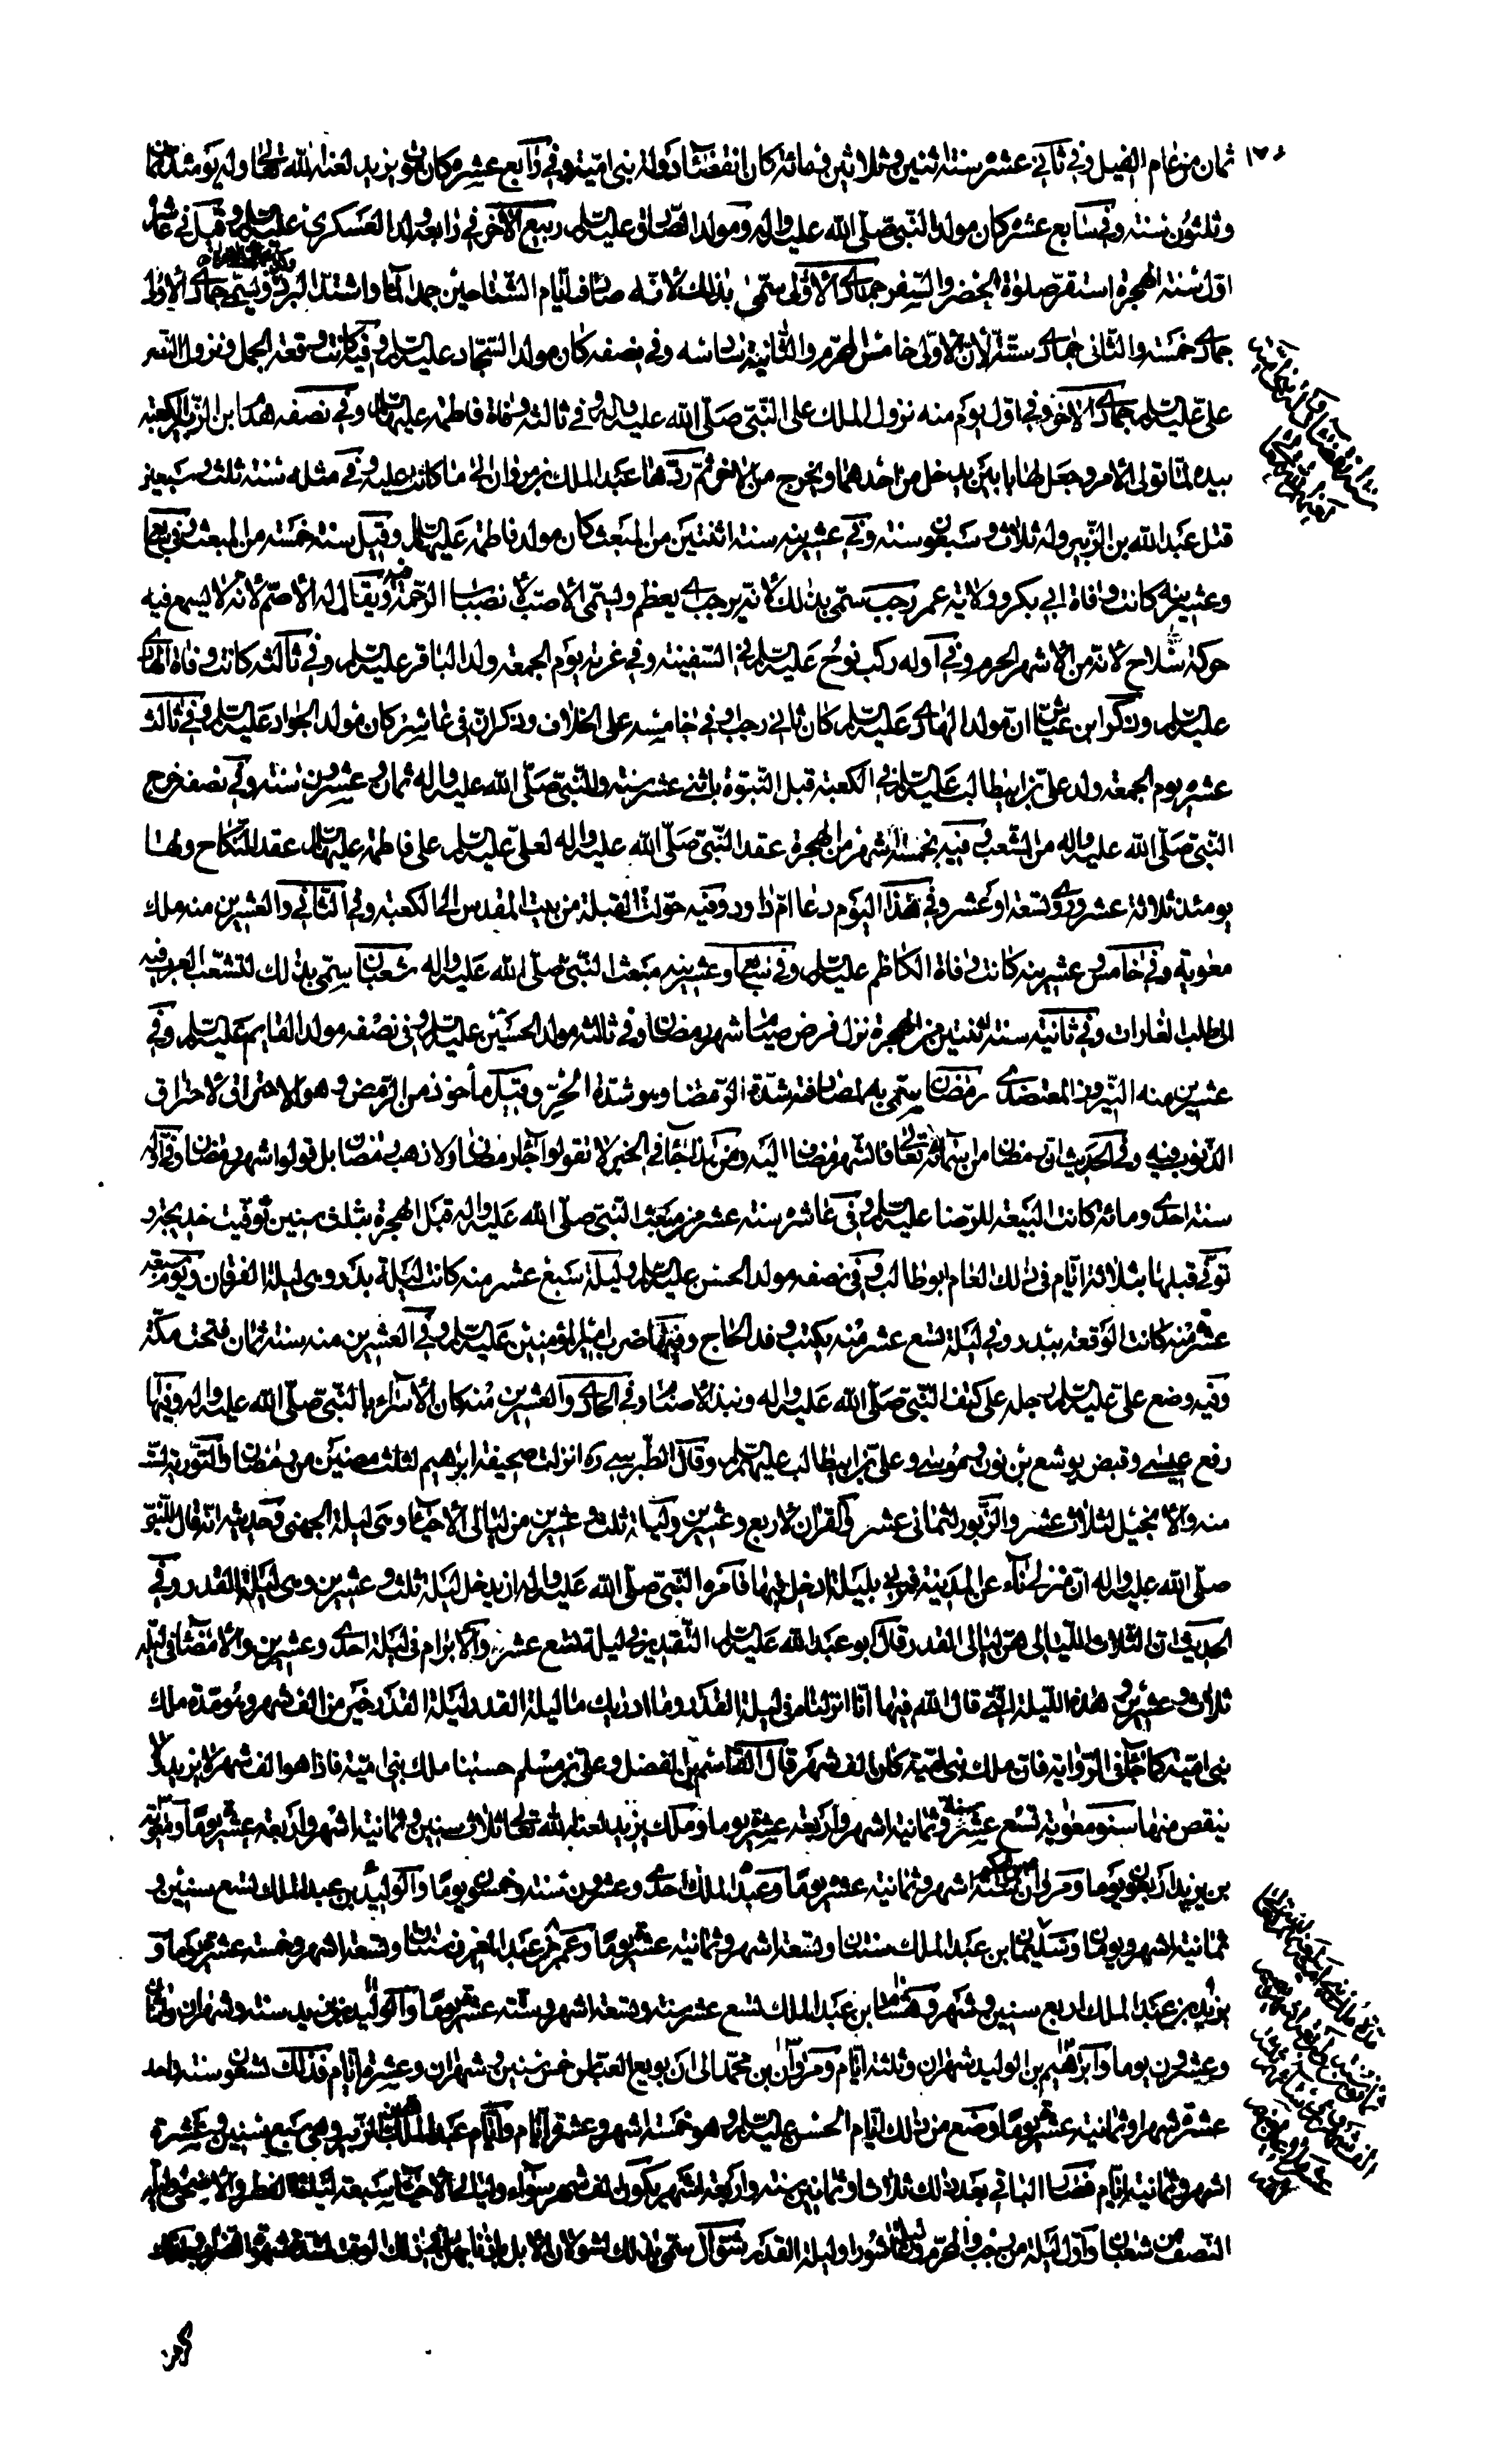 ثمان من عام الفيل وفي ثاني عشره سنة اثنين وثلاثين ومائة كان انقضاء دولة بني امية وفي رابع عشره كان موت يزيد لعنه الله تعالى وله يومئذ ثمان
وثلثون سنة وفي سابع عشره كان مولد النبي صلى الله عليه واله ومولد الصادق عليه السلم ربيع الاخر في رابعه ولد العسكري عليه السلم وقيل في عاشره
اول سنة الهجرة استقر صلوة الحضر والسفر جمادى الاولى سمى بذلك لانه صادف ايام الشتا حين جمد الماء واشتد البرد ويسمى جمادى الاولى
جمادى خمسة والثاني جمادى ستة لان الاولى خامس المحرم والثانية سادسه وفي نصفه كان مولد السجاد عليه السلم وفيه كانت وقعة الجمل ونزول النصر
على علي عليه السلم جمادى الاخر وفي اول يوم منه نزول الملك على النبي صلى الله عليه واله وفي ثالثه وفاة فاطمة عليها السلم وفي نصفه هدم ابن الزبير الكعبة
بيده لما تولى الامر وجعل لها بابين يدخل من احدهما ويخرج من الاخر ثم ردها عبد الملك بن مروان الى ما كانت عليه وفي مثله سنة ثلث وسبعين
قتل عبد الله بن الزبير وله ثلاث وسبعون سنة وفي عشرينه سنة اثنتين من المبعث كان مولد فاطمة عليها السلم وقيل سنة خمسة من المبعث وفي سابع
وعشرينه كانت وفاة ابي بكر وولاية عمر رجب سمي بذلك لانه يرجب اي يعظم ويسمى الاصب لانصباب الرحمة فيه ويقال له الاصم لانه لا يسمع فيه
حركة سلاح لانه من الاشهر الحرم وفي اوله ركب نوح عليه السلم في السفينة وفي غرته يوم الجمعة ولد الباقر عليه السلم وفي ثالثه كانت وفاة الهادي
عليه السلم وذكر ابن عياش ان مولد الهادي عليه السلم كان ثاني رجب او في خامسه على الخلاف وذكر ان في عاشره كان مولد الجواد عليه السلم وفي ثالث
عشره يوم الجمعة ولد علي بن ابيطالب عليه السلم في الكعبة قبل النبوة باثني عشر سنة وللنبي صلى الله عليه واله ثمان وعشرون سنة وفي نصفه خرج
النبي صلى الله عليه واله من الشعب وفيه بخمسة اشهر من الهجرة عقد النبي صلى الله عليه واله لعلي عليه السلم على فاطمة عليها السلم عقد النكاح ولها
يومئذ ثلاثة عشر وروي وتسعة او عشر وفي هذا اليوم دعا ام داود وفيه حولت القبلة من بيت المقدس الى الكعبة وفي الثاني والعشرين منه ملك
معوية وفي خامس عشرينه كانت وفاة الكاظم عليه السلم وفي سابع وعشرينه مبعث النبي صلى الله عليه واله شعبان سمى بذلك لتشعب العرب فيه
الى طلب الغارات وفي ثانيه سنة اثنتين من الهجرة نزل فرض صيام شهر رمضان وفي ثالثه مولد الحسين عليه السلم وفي نصفه مولد القايم عليه السلم وفي
عشرين منه النيروز المعتضدي رمضان سمى به لمصادفته شدة الرمضا وهو شدة الحر وقيل مأخوذ من الرمض وهو الاحتراق لاحتراق
الذنوب فيه وفي الحديث ان رمضان من اسمائه تعالى فالشهر مضاف اليه ومن هذا جاء في الخبر لا تقولوا جاء رمضان ولا ذهب رمضان بل قولوا شهر رمضان وفي اوله
سنة احدى ومائة كانت البيعة للرضا عليه السلم وفي عاشره سنة عشر من مبعث النبي صلى الله عليه واله قبل الهجرة بثلث سنين توفيت خديجة و
توفي قبلها بثلاثة ايام في ذلك العام ابو طالب وفي نصفه مولد الحسن عليه السلم وليلة سبع عشر منه كانت ليلة بدر وهى ليلة الفرقان ويوم سبعة
عشر منه كانت الوقعة ببدر وفي ليلة تسع عشر منه يكتب وفد الحاج وفيها ضرب امير المؤمنين عليه السلم وفي العشرين منه سنة ثمان فتحت مكة
وفيه وضع علي عليه السلم رجله على كتف النبي صلى الله عليه واله ونبذ الاصنام وفي الحادي والعشرين منه كان الاسراء بالنبي صلى الله عليه واله وفيها
رفع عيسى وقبض يوشع بن نون وموسى وعلي بن ابيطالب عليهم السلم وقال الطبرسي ره انزلت صحيفة ابرهيم لثلث مضين من رمضان والتورية لست
منه والانجيل لثلاث عشر والزبور لثماني عشر والقران لاربع وعشرين وليلة ثلث وعشرين من ليالي الاحياء وهى ليلة الجهني وحديثه انه قال للنبي
صلى الله عليه واله ان منزلي ناء عن المدينة فمرني بليلة ادخل فيها فامره النبي صلى الله عليه واله ان يدخل ليلة ثلث وعشرين وهى ليلة القدر وفي
الحديث ان الثلاث الليالي هى ليالي القدر قال ابو عبد الله عليه السلم التقدير في ليلة تسع عشر والابرام في ليلة احدى وعشرين والامضاء في ليلة
ثلاث وعشرين وهذه الليلة التي قال الله فيها انا انزلناه في ليلة القدر وما ادريك ما ليلة القدر ليلة القدر خير من الف شهر وهو مدة ملك
بني امية كما جاء في الرواية فان ملك بني امية كان الف شهر قال القاسم بن الفضل وعلي بن مسلم حسبنا ملك بني امية فاذا هو الف شهر لا يزيد ولا
ينقص منها سنو معوية تسع عشر سنة وثمانية اشهر واربعة عشرة يوما وملك يزيد لعنه الله تعالى ثلاث سنين وثمانية اشهر واربعة عشر يوما ومعوية
بن يزيد اربعون يوما ومروان بن الحكم ستة اشهر وثمانية عشر يوما وعبد الملك احدى وعشرون سنة وخمسون يوما والوليد بن عبد الملك تسع سنين و
ثمانية اشهر ويومان وسليمان ابن عبد الملك سنتان وتسعة اشهر وثمانية عشر يوما وعمر بن عبد العزيز سنتان وتسعة اشهر وخمسة عشر يوما و
يزيد بن عبد الملك اربع سنين وشهر وهشام ابن عبد الملك تسع عشر سنة وتسعة اشهر وستة عشر يوما والوليد بن يزيد سنة وشهران وثمان
وعشرون يوما وابرهيم بن الوليد شهران وثلثة ايام ومروان بن محمد الى ان بويع العباس خمس سنين وشهران وعشرة ايام فذلك تسعون سنة واحد
عشرة شهرا وثمانية عشر يوما وضع من ذلك ايام الحسن عليه السلم وهو خمسة اشهر وعشرة ايام وايام عبد الله بن الزبير وهى سبع سنين وعشرة
اشهر وثمانية ايام فصار الباقي بعد ذلك ثلاثا وثمانين سنة واربعة اشهر يكون الف شهر سواء وليالي الاحياء سبعة ليلتا الفطر والاضحى وليلة
النصف من شعبان واول ليلة من رجب والمحرم وليلة عاشورا وليلة القدر شوال سمى بذلك لشولان الابل باذنابها في ذلك الوقت